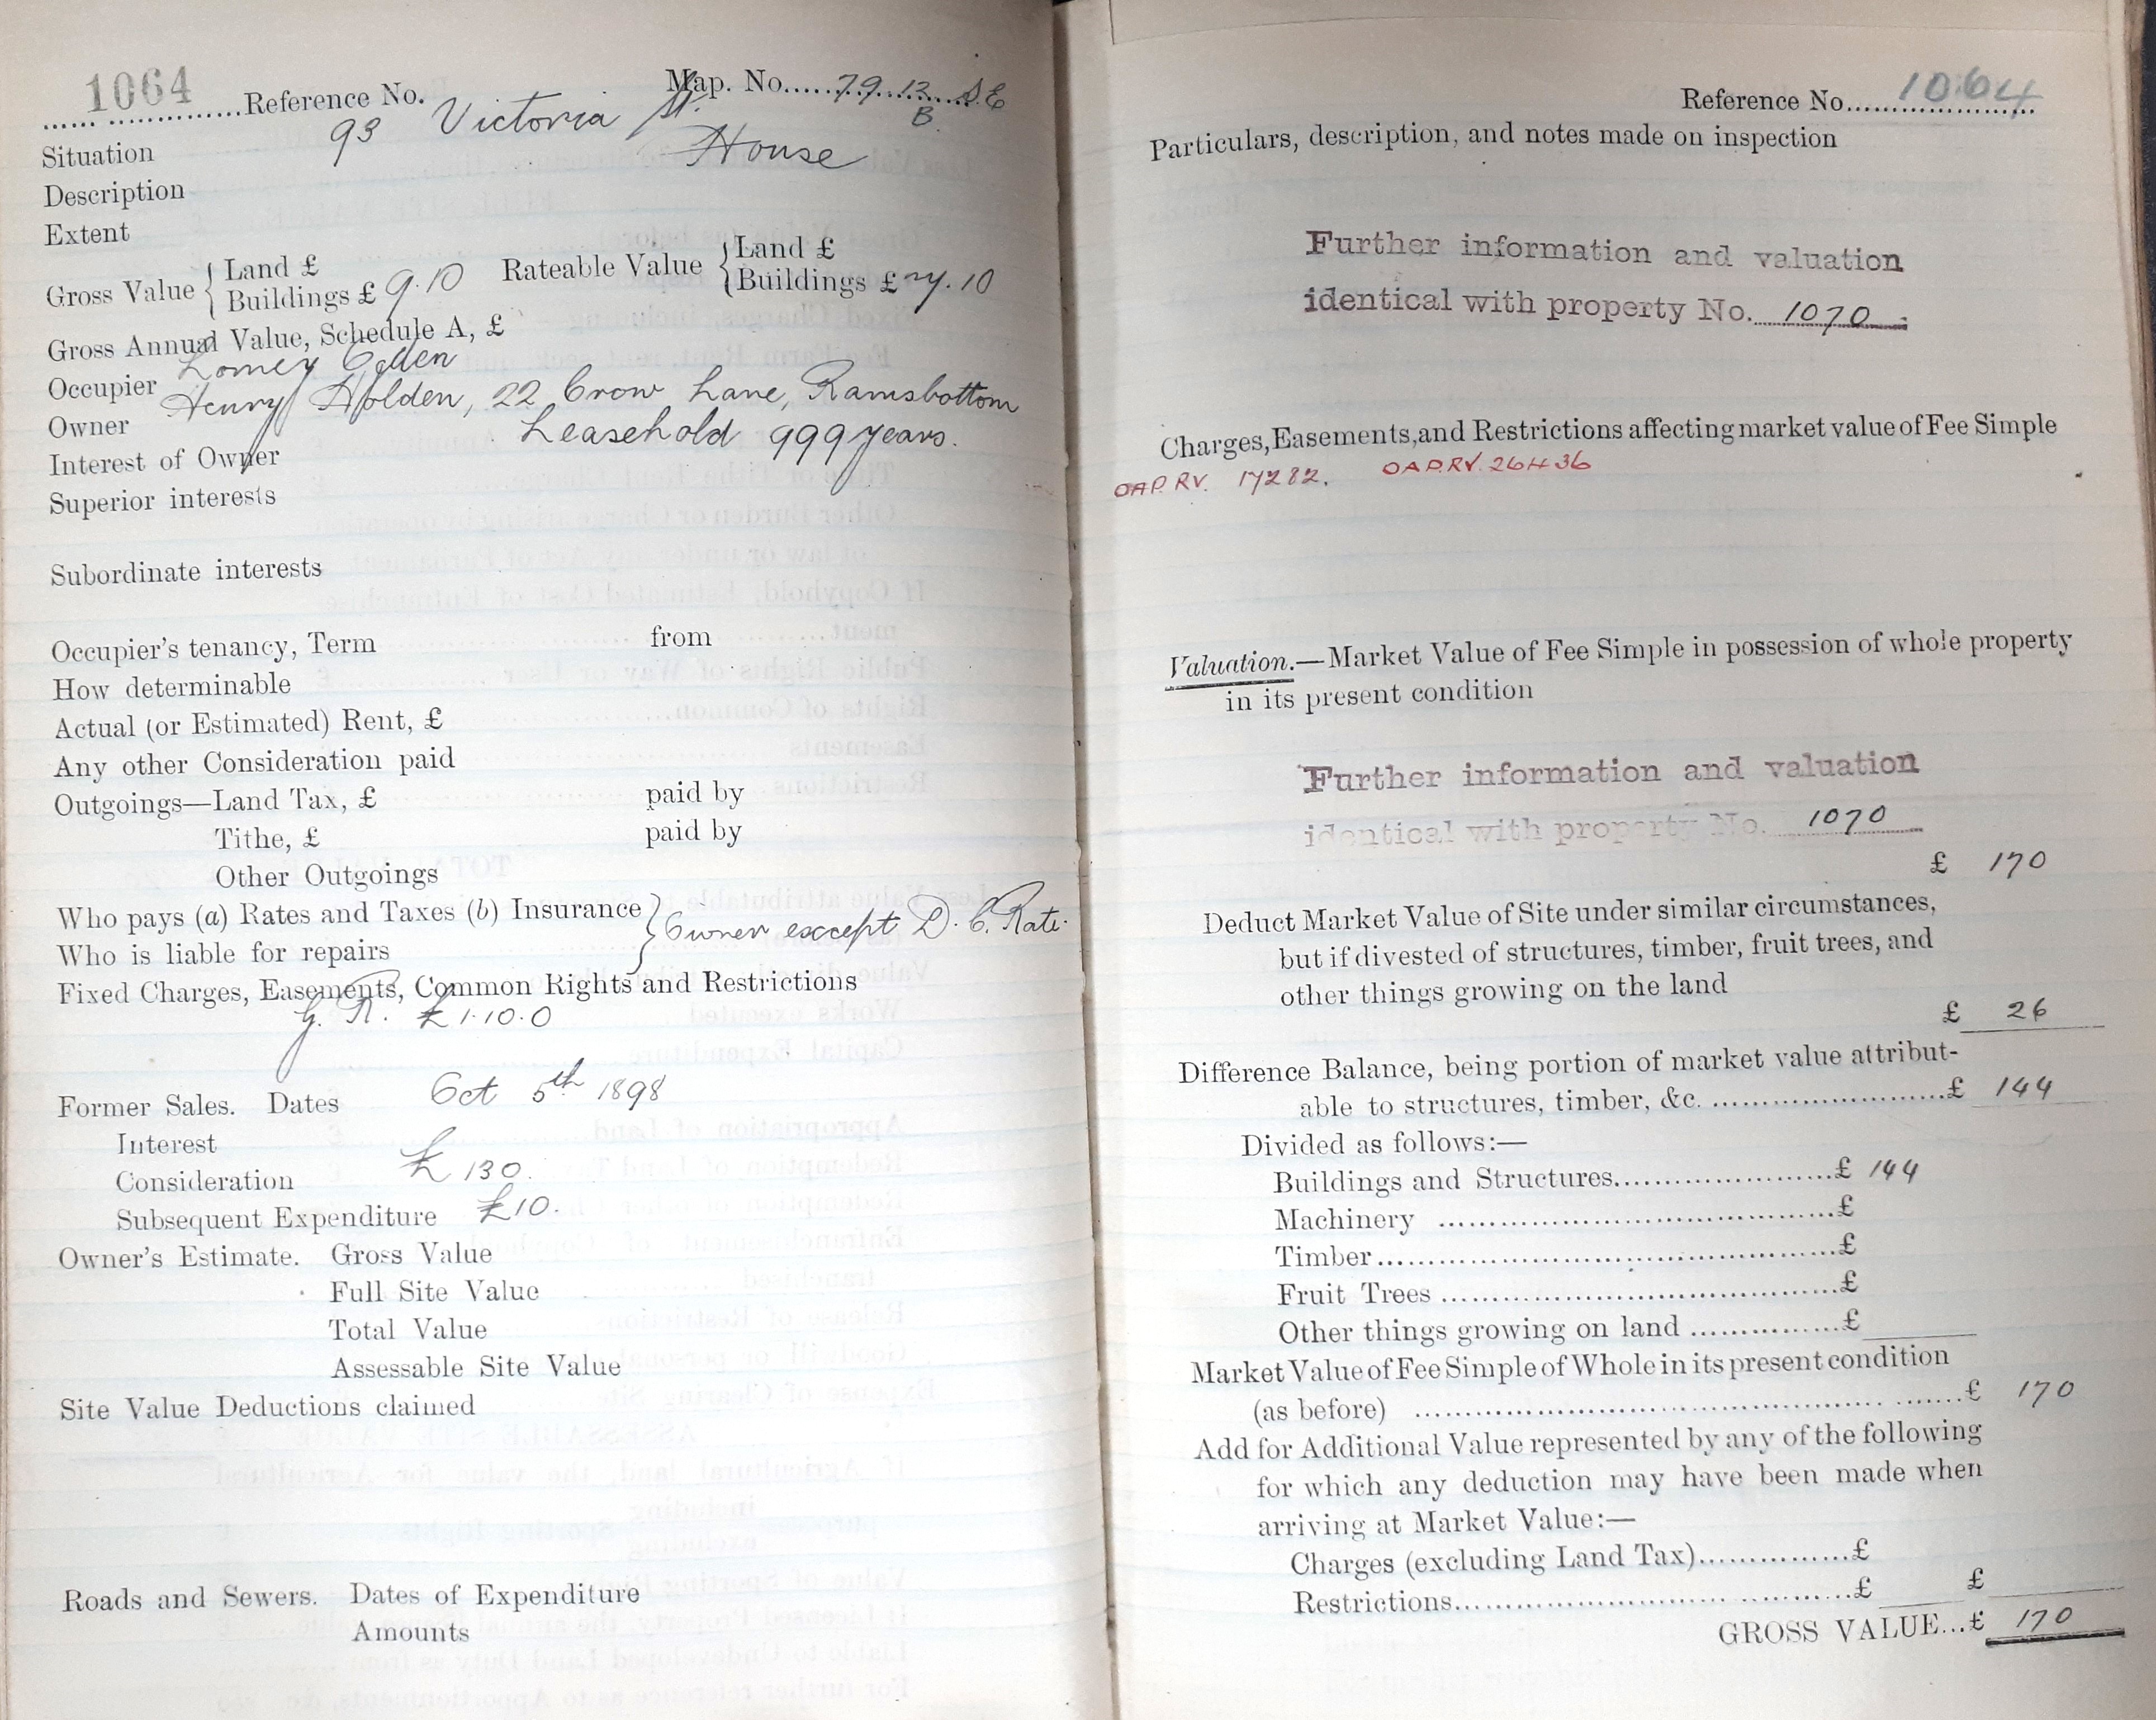 1064 Reference No. Map. No. 79.12 S.E
B.
Situation 93 Victoria St.
Description House
Extent
Gross Value { Land £ Rateable Value { Land £
Buildings £ 9.10 Buildings £ 7.10
Gross Annual Value, Schedule A, £
Occupier Ogden
Owner Henry Holden, 22 Crow Lane, Ramsbottom
Interest of Owner Leasehold 999 years.
Superior interests
Subordinate interests
Occupier's tenancy, Term from
How determinable
Actual (or Estimated) Rent, £
Any other Consideration paid
Outgoings—Land Tax, £ paid by
Tithe, £ paid by
Other Outgoings
Who pays (a) Rates and Taxes (b) Insurance } Owner except D. C. Rate.
Who is liable for repairs
Fixed Charges, Easements, Common Rights and Restrictions
G. R. £1.10.0
Former Sales. Dates Oct 5th 1898
Interest
Consideration £130.
Subsequent Expenditure £10.
Owner's Estimate. Gross Value
Full Site Value
Total Value
Assessable Site Value
Site Value Deductions claimed
Roads and Sewers. Dates of Expenditure
Amounts
Reference No. 1064
Particulars, description, and notes made on inspection
Further information and valuation
identical with property No. 1070.
Charges, Easements, and Restrictions affecting market value of Fee Simple
OAP.RV. 17282. OAP.RV. 26436
Valuation.—Market Value of Fee Simple in possession of whole property
in its present condition
Further information and valuation
identical with property No. 1070
£ 170
Deduct Market Value of Site under similar circumstances,
but if divested of structures, timber, fruit trees, and
other things growing on the land
£ 26
Difference Balance, being portion of market value attribut-
able to structures, timber, &c. £ 144
Divided as follows:—
Buildings and Structures £ 144
Machinery £
Timber £
Fruit Trees £
Other things growing on land £
Market Value of Fee Simple of Whole in its present condition
(as before) £ 170
Add for Additional Value represented by any of the following
for which any deduction may have been made when
arriving at Market Value:—
Charges (excluding Land Tax) £
Restrictions £ £
GROSS VALUE...£ 170